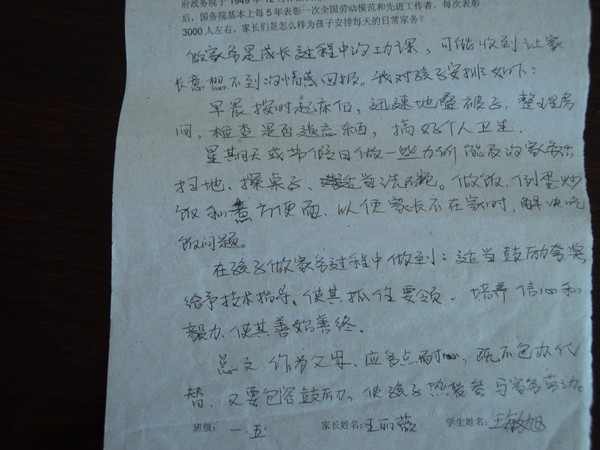 府政务院于 1949 年 12 月
后，国务院基本上每5年表彰一次全国劳动模范和先进工作者，每次表彰
3000 人左右。家长们是怎么样为孩子安排每天的日常家务？
做家务是成长过程中的功课，可能收到让家
长意想不到的情感回报。我对孩子安排如下：
早晨按时起床后，迅速地叠被子，整理房
间，检查是否遗忘东西，搞好个人卫生。
星期天或节假日做一些力所能及的家务
扫地、擦桌子、适当洗碗。做饭、例蛋炒
饭和煮方便面，以便家长不在家时，解决吃
饭问题。
在孩子做家务过程中做到：适当鼓励夸奖
给予技术指导、使其抓住要领。培养信心和
毅力，使其善始善终。
总之 作为父母，应多点耐心，既不包办代
替，又要包容鼓励，使孩子热爱劳动
班级： 一.五 家长姓名：王丽薇 学生姓名：王敏旭